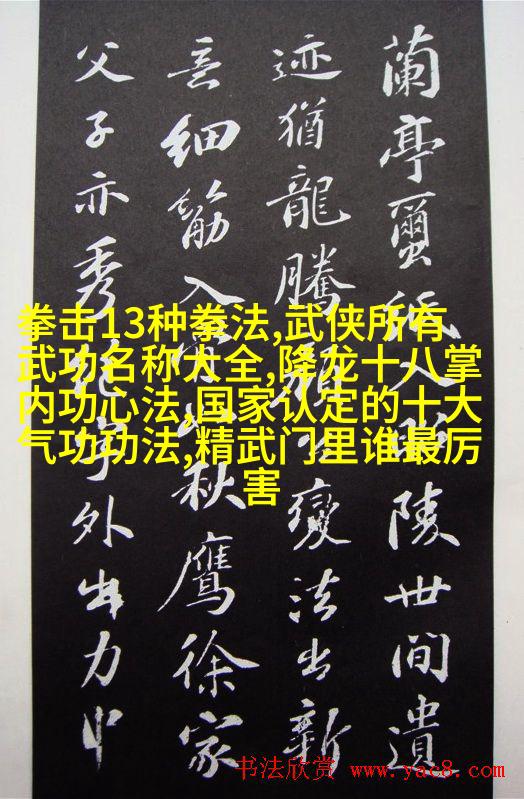 蘭亭繭紙入昭陵世間遺
迹猶龍騰顏公變法出新
意細筋入骨如秋鷹徐家
父子亦秀絕字外出力中
拳击13种拳法,武侠所有
武功名称大全,降龙十八掌
内功心法,国家认定的十大
气功功法,精武门里谁最厉
害
书法欣赏 www.yac8.com